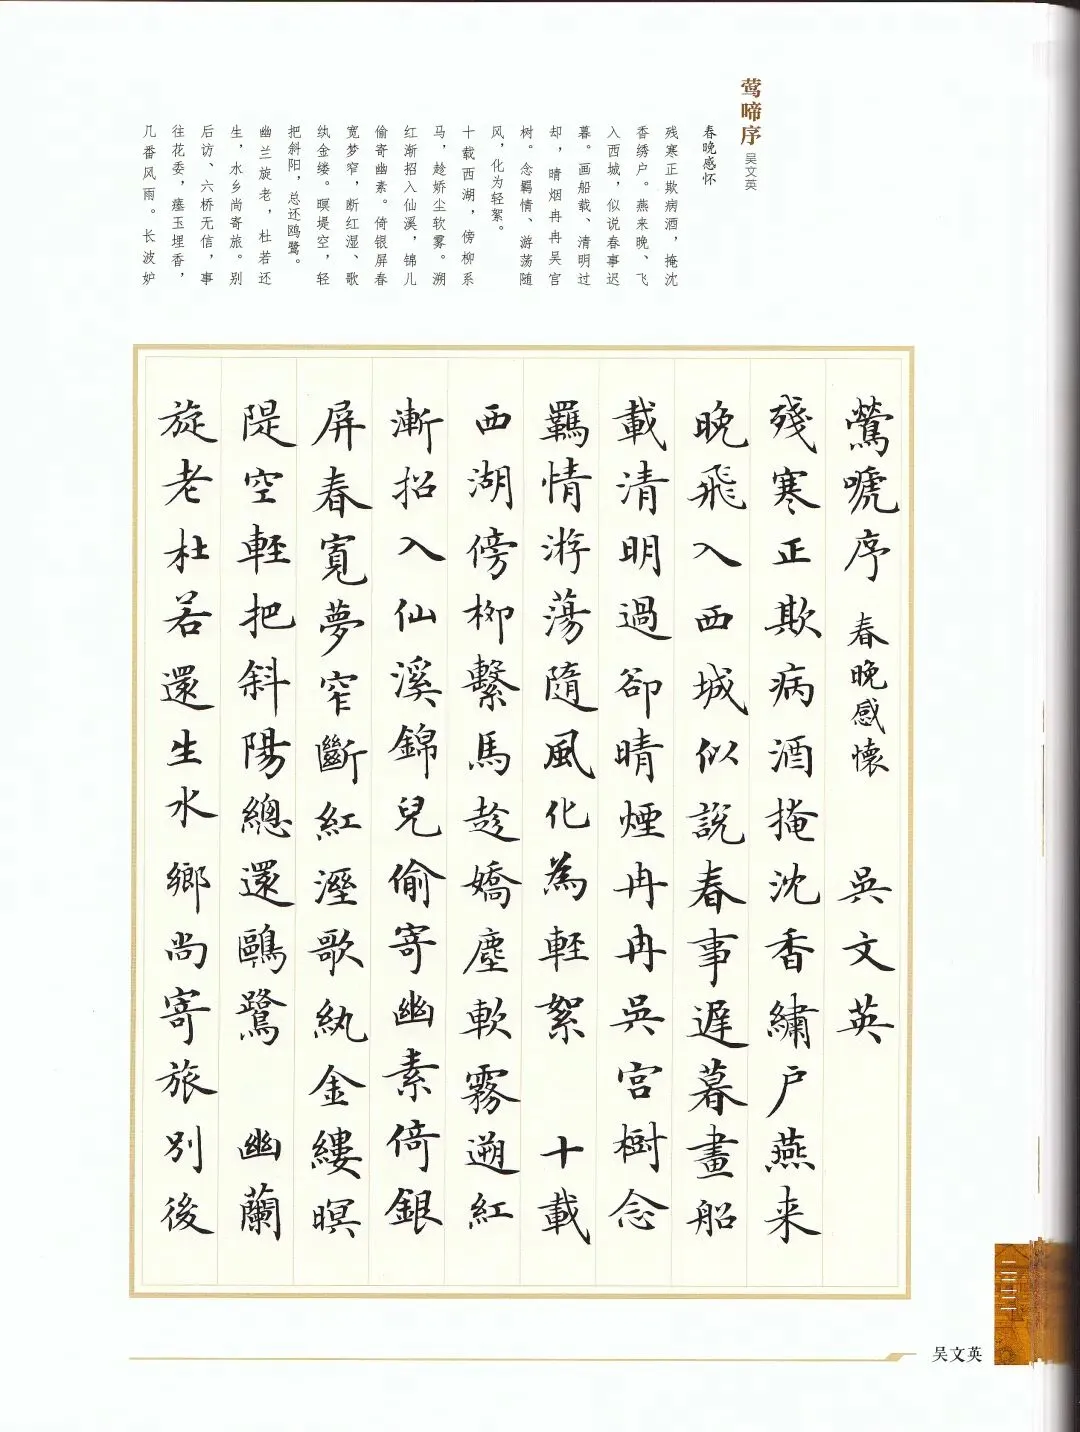 莺啼序 吴文英
春晚感怀
残寒正欺病酒，掩沈
香绣户。燕来晚、飞
入西城，似说春事迟
暮。画船载、清明过
却，晴烟冉冉吴宫
树。念羁情、游荡随
风，化为轻絮。
十载西湖，傍柳系
马，趁娇尘软雾。溯
红渐招入仙溪，锦儿
偷寄幽素。倚银屏春
宽梦窄，断红湿、歌
纨金缕。暝堤空，轻
把斜阳，总还鸥鹭。
幽兰旋老，杜若还
生，水乡尚寄旅。别
后访、六桥无信，事
往花委，瘗玉埋香，
几番风雨。长波妒
鶯嗁序 春晚感懷 吳文英
殘寒正欺病酒掩沈香繡户燕来
晚飛入西城似說春事遲暮畫船
載清明過卻晴煙冉冉吳宮樹念
羈情游蕩隨風化為輕絮 十載
西湖傍柳繫馬趁嬌塵軟霧遡紅
漸招入仙溪錦兒偷寄幽素倚銀
屏春寬夢窄斷紅溼歌紈金縷暝
隄空輕把斜陽總還鷗鷺 幽蘭
旋老杜若還生水鄉尚寄旅別後
吴文英